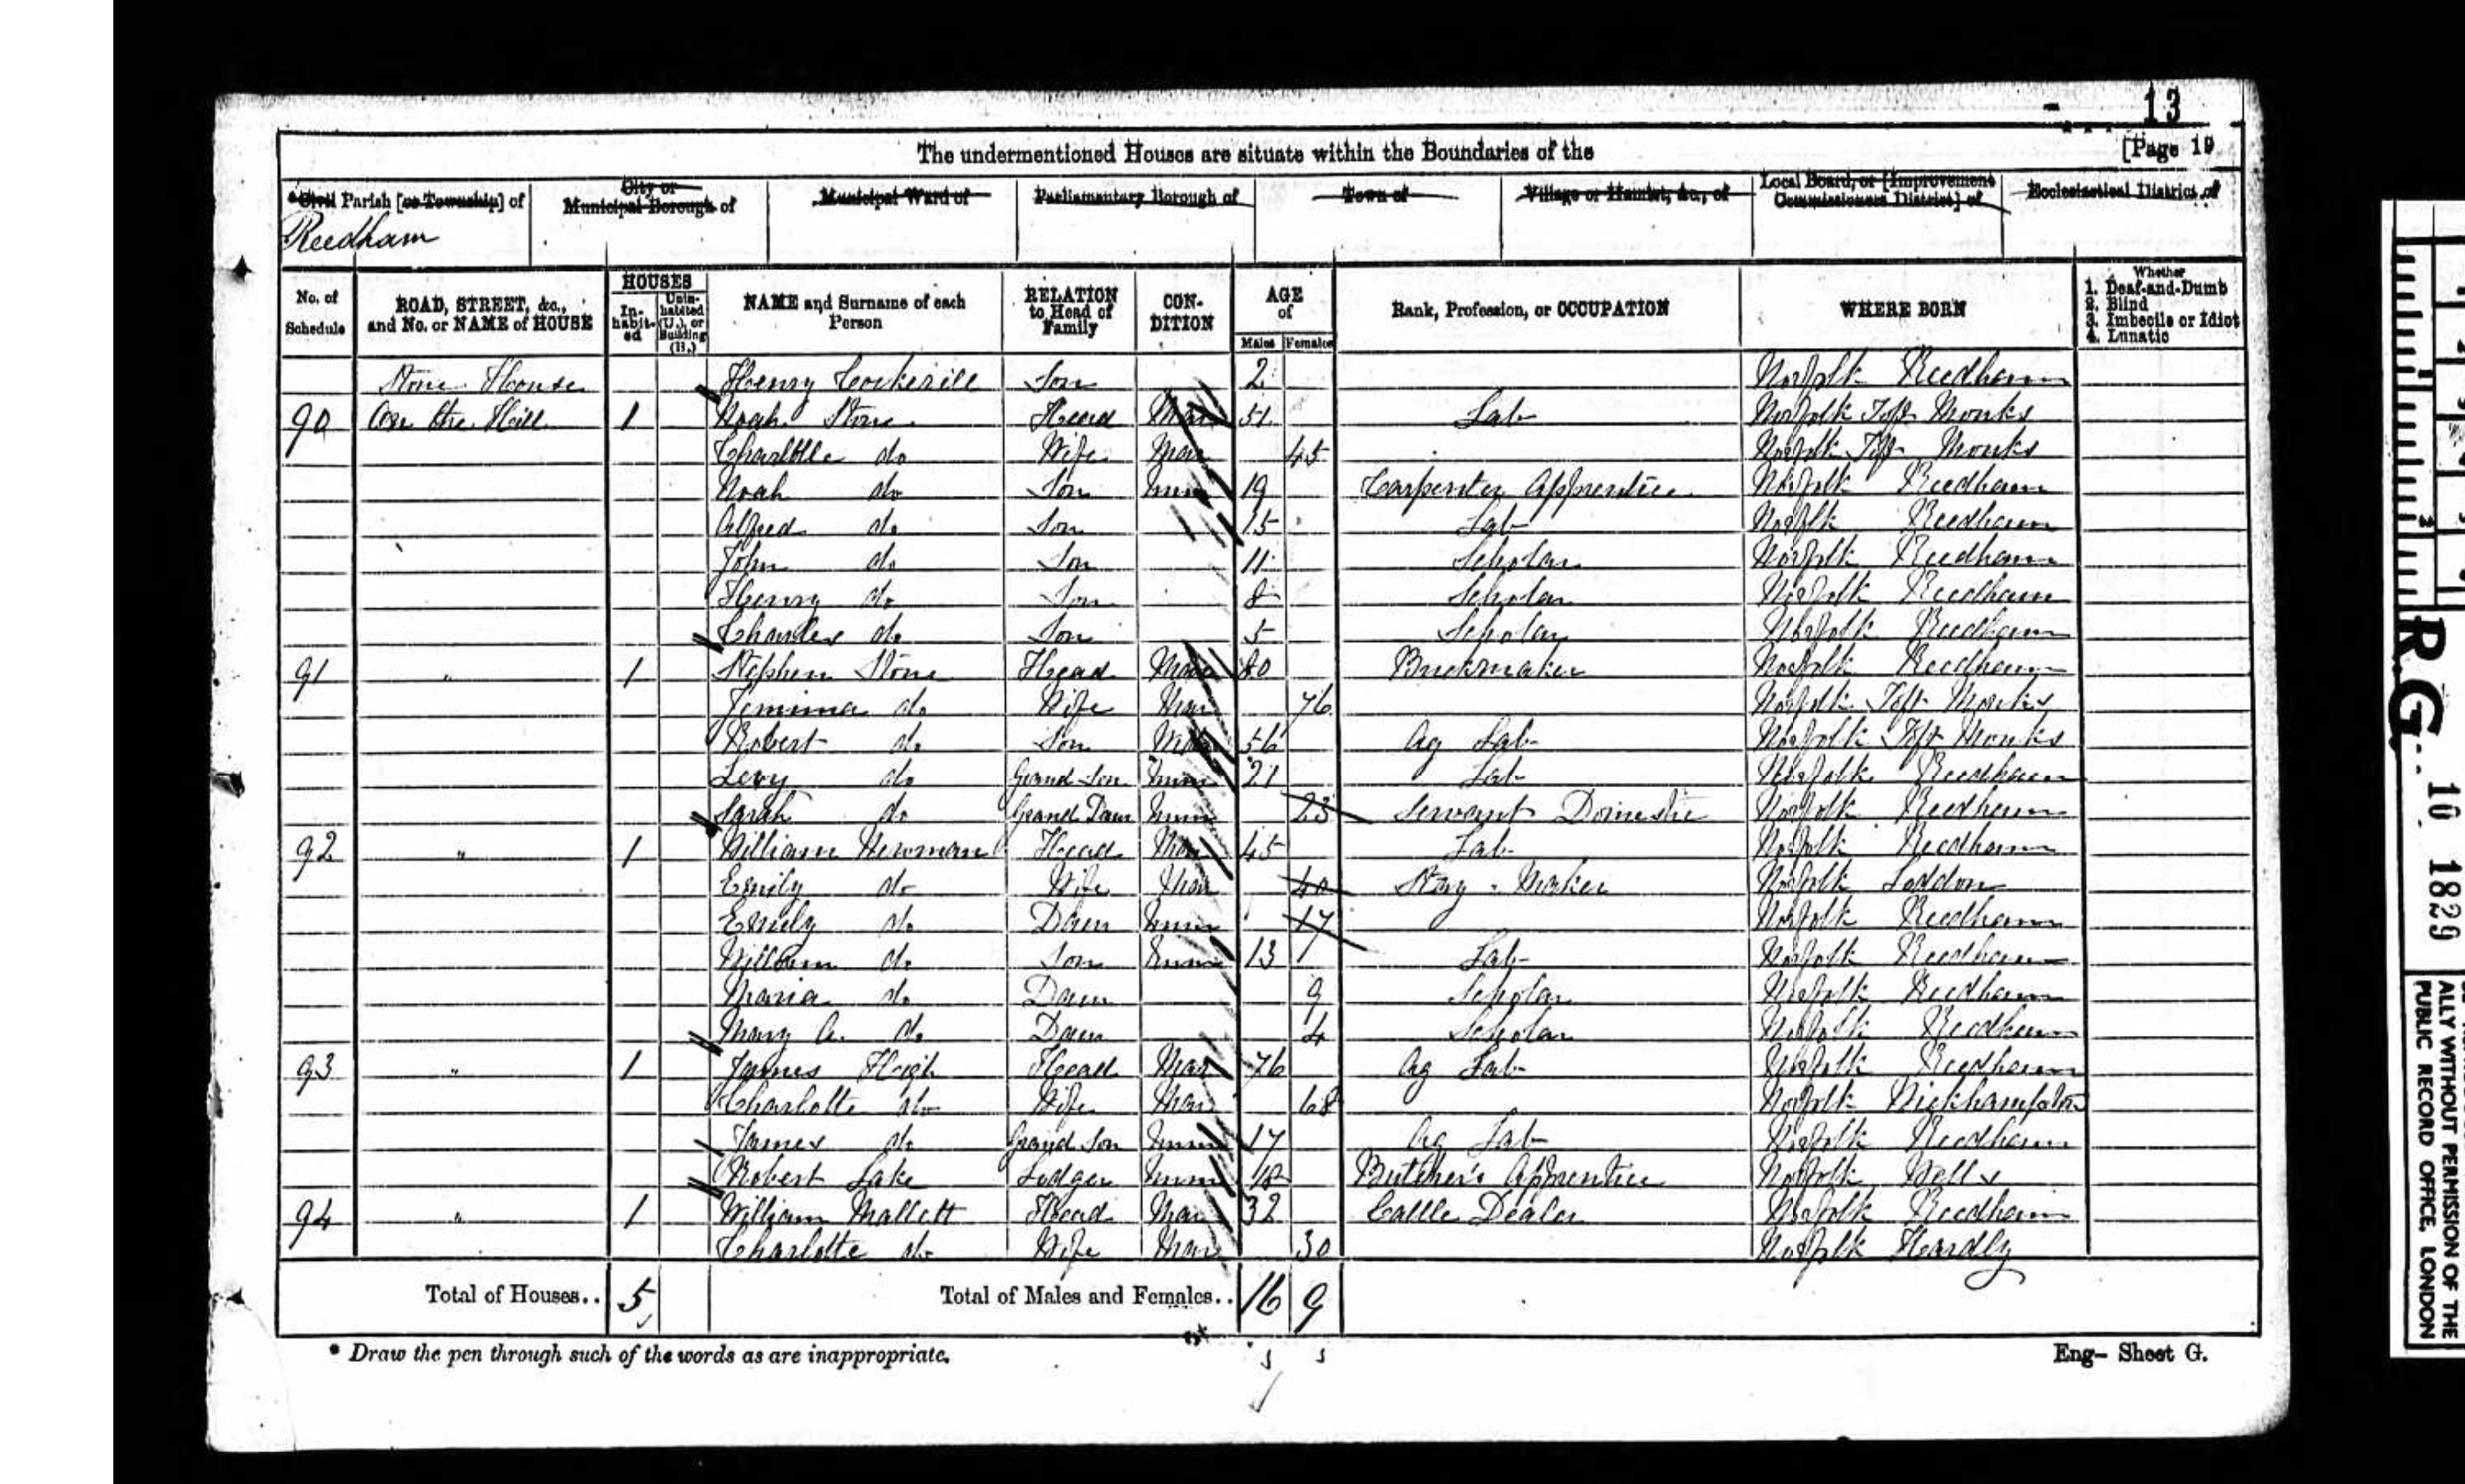 13
The undermentioned Houses are situate within the Boundaries of the [Page 19
*Civil Parish [or Township] of City or Municipal Borough of Municipal Ward of Parliamentary Borough of Town of Village or Hamlet, &c., of Local Board, or [Improvement Commissioners District] of Ecclesiastical District of
Reedham
No. of Schedule ROAD, STREET, &c., and No. or NAME of HOUSE HOUSES In-habit-ed Unin-habited (U.), or Building (B.) NAME and Surname of each Person RELATION to Head of Family CON-DITION AGE of Males Females Rank, Profession, or OCCUPATION WHERE BORN Whether 1. Deaf-and-Dumb 2. Blind 3. Imbecile or Idiot 4. Lunatic
Stone House Henry Cockerill Son 2 Norfolk Reedham
90 On the Hill 1 Noah Stone Head Mar 51 Lab Norfolk Toft Monks
Charlotte do Wife Mar 45 Norfolk Toft Monks
Noah do Son Unm 19 Carpenter Apprentice Norfolk Reedham
Alfred do Son 15 Lab Norfolk Reedham
John do Son 11 Scholar Norfolk Reedham
Henry do Son 8 Scholar Norfolk Reedham
Charles do Son 5 Scholar Norfolk Reedham
91 " 1 Stephen Stone Head Mar 80 Brickmaker Norfolk Reedham
Jemima do Wife Mar 76 Norfolk Toft Monks
Robert do Son 56 Ag Lab Norfolk Toft Monks
Levy do Grand Son Unm 21 Lab Norfolk Reedham
Sarah do Grand Daur Unm 23 Servant Domestic Norfolk Reedham
92 " 1 William Newman Head Mar 45 Lab Norfolk Reedham
Emily do Wife Mar 40 Stay Maker Norfolk Loddon
Emily do Daur Unm 17 Norfolk Reedham
William do Son Unm 13 Lab Norfolk Reedham
Maria do Daur 9 Scholar Norfolk Reedham
Mary A. do Daur 4 Scholar Norfolk Reedham
93 " 1 James High Head Mar 76 Ag Lab Norfolk Reedham
Charlotte do Wife Mar 68 Norfolk Wickhampton
James do Grand Son Unm 17 Ag Lab Norfolk Reedham
Robert Lake Lodger Unm 18 Butcher's Apprentice Norfolk Wells
94 " 1 William Mallett Head Mar 32 Cattle Dealer Norfolk Reedham
Charlotte do Wife Mar 30 Norfolk Hardly
Total of Houses.. 5 Total of Males and Females.. 16 9
* Draw the pen through such of the words as are inappropriate.
Eng- Sheet G.
R.G. 10 1829
ALLY WITHOUT PERMISSION OF THE
PUBLIC RECORD OFFICE, LONDON